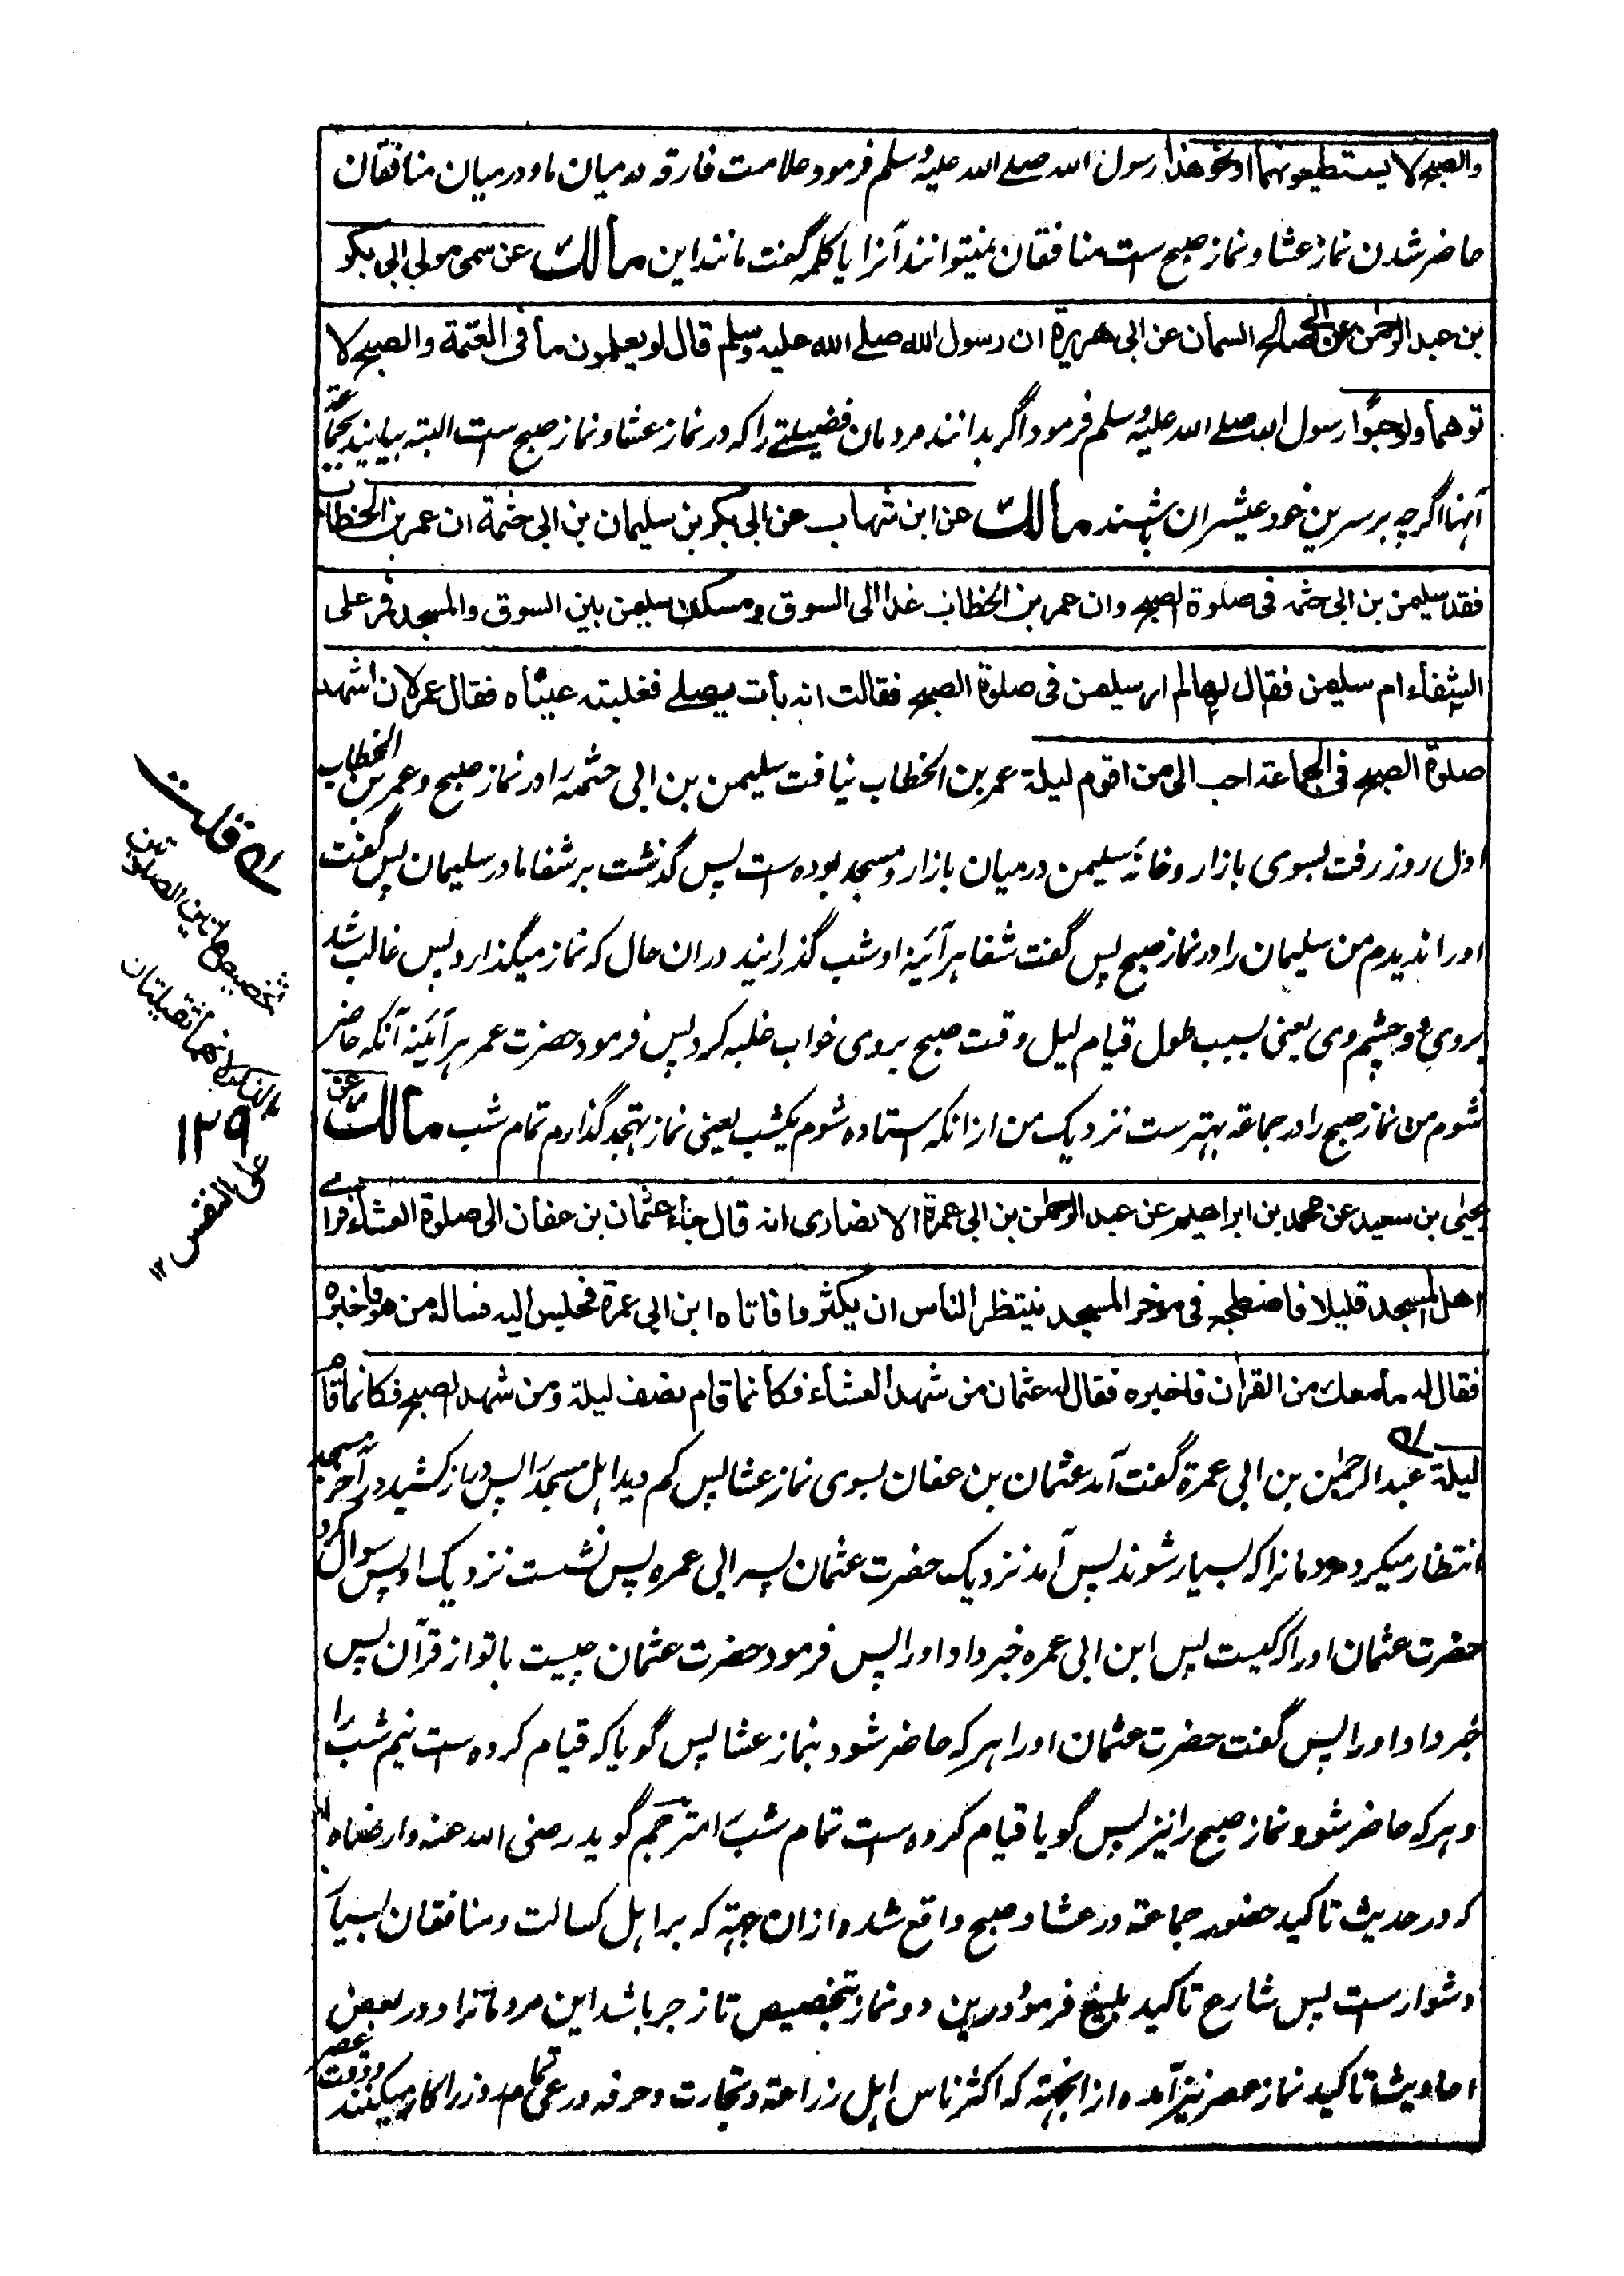 والصبح لا یستطیعونهما او نحو هذا رسول الله صلے الله علیه وسلم فرمود علامت فارقه درمیان ما و درمیان منافقان
حاضر شدن نماز عشا و نماز صبح ست منافقان نمیتوانند آنرا یا کلمه گفت مانند این مالك عن سمی مولی ابی بکر
بن عبد الرحمن عن ابی صالح السمان عن ابی هریرة ان رسول الله صلے الله علیه وسلم قال لو یعلمون ما فی العتمة والصبح لا
توهما ولو حبوا رسول الله صلے الله علیه وسلم فرمود اگر بدانند مردمان فضیلتے را که در نماز عشا و نماز صبح ست البته بیایند بجماعة
آنها اگرچه بر سرین خود عیشران باشند مالك عن ابن شهاب عن ابی بکر بن سلیمان بن ابی حثمة ان عمر بن الخطاب
فقد سلیمن بن ابی حثمه فی صلوة الصبح وان عمر بن الخطاب غدا الی السوق ومسکن سلیمن بین السوق والمسجد فمر علی
الشفاء ام سلیمن فقال لها لم ار سلیمن فی صلوة الصبح فقالت انه بات یصلے فغلبته عیناه فقال عمر لان اشهد
صلوة الصبح فی الجماعة احب الی من اقوم لیلة عمر بن الخطاب نیافت سلیمن بن ابی حثمه را در نماز صبح و عمر بن الخطاب
اول روز رفت بسوی بازار و خانهٔ سلیمن درمیان بازار و مسجد بوده ست پس گذشت بر شفا مادر سلیمان پس گفت
اورا ندیدم من سلیمان را در نماز صبح پس گفت شفا هر آئینه او شب گذرانید دران حال که نماز میگذارد پس غالب شد
بروی دو چشم وی یعنی بسبب طول قیام لیل وقت صبح بروی خواب غلبه کرد پس فرمود حضرت عمر هر آئینه آنکه حاضر
شوم من نماز صبح را در جماعة بهتر ست نزدیک من ازانکه استاده شوم یکشب یعنی نماز تهجد گذارم تمام شب مالك عن
یحیی بن سعید عن محمد بن ابراهیم عن عبد الرحمن بن ابی عمرة الانصاری انه قال جاء عثمان بن عفان الی صلوة العشاء فرای
اهل المسجد قلیلا فاضطجع فی مؤخر المسجد ینتظر الناس ان یکثروا فاتاه ابن ابی عمرة فجلس الیه فساله من هو فاخبره
فقال له ما معك من القران فاخبره فقال له عثمان من شهد العشاء فکانما قام نصف لیلة ومن شهد الصبح فکانما قام
لیلة عبد الرحمن بن ابی عمرة گفت آمد عثمان بن عفان بسوی نماز عشا پس کم دید اهل مسجد را پس دراز کشید در آخر مسجد
انتظار میکرد مردمانرا که بسیار شوند پس آمد نزدیک حضرت عثمان پسر ابی عمره پس نشست نزدیک او پس سوال کرد
حضرت عثمان اورا که کیست پس ابن ابی عمره خبر داد اورا پس فرمود حضرت عثمان چیست با تو از قرآن پس
خبر داد اورا پس گفت حضرت عثمان اورا هر که حاضر شود بنماز عشا پس گویا که قیام کرده ست نیم شب را
و هر که حاضر شود نماز صبح را نیز پس گویا قیام کرده ست تمام شب را مترجم گوید رضی الله عنه وارضاه
که در حدیث تاکید حضور جماعة در عشا و صبح واقع شده ازان جهة که بر اهل کسالت و منافقان بسیار
دشوار ست پس شارع تاکید بلیغ فرمود درین دو نماز بتخصیص تا زجر باشد این مردمانرا و در بعض
احادیث تاکید نماز عصر نیز آمده از انجهة که اکثر ناس اهل زراعة و تجارت و حرفه در تمامی روز کار میکنند و وقت عصر
قلت
تخصیص هاتین الصلوتین
بالزیادة انهما ثقیلتان
۱۲۹
علی النفس ۱۲